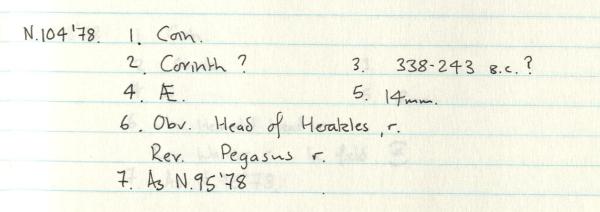 N.104'78. 1. Coin.
2. Corinth ? 3. 338-243 B.C. ?
4. Æ. 5. 14mm.
6. Obv. Head of Herakles, r.
Rev. Pegasus r.
7. As N.95'78